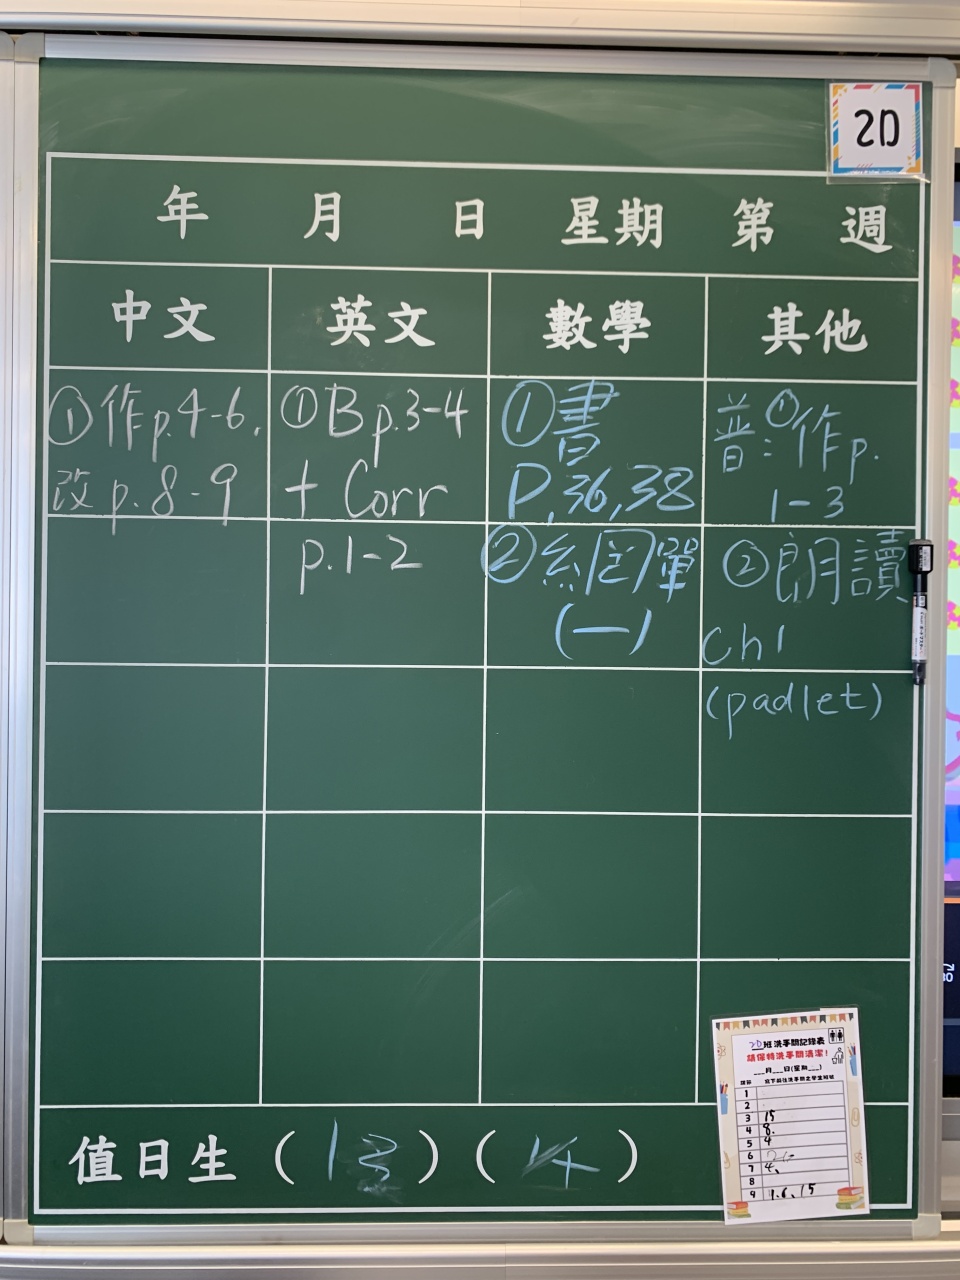 2D
年 月 日 星期 第 週
中文 英文 數學 其他
①作p.4-6.
改p.8-9
①Bp.3-4
+ Corr
p.1-2
①書
P,36,38
②網單
(一)
普:①作p.
1-3
②朗讀
Ch1
(padlet)
2D班洗手間記錄表
請保持洗手間清潔!
___月___日(星期___)
1
2
3 15
4 8.
5 4
6
7 4、
8
9 1.6、15
值日生 (13) (14)